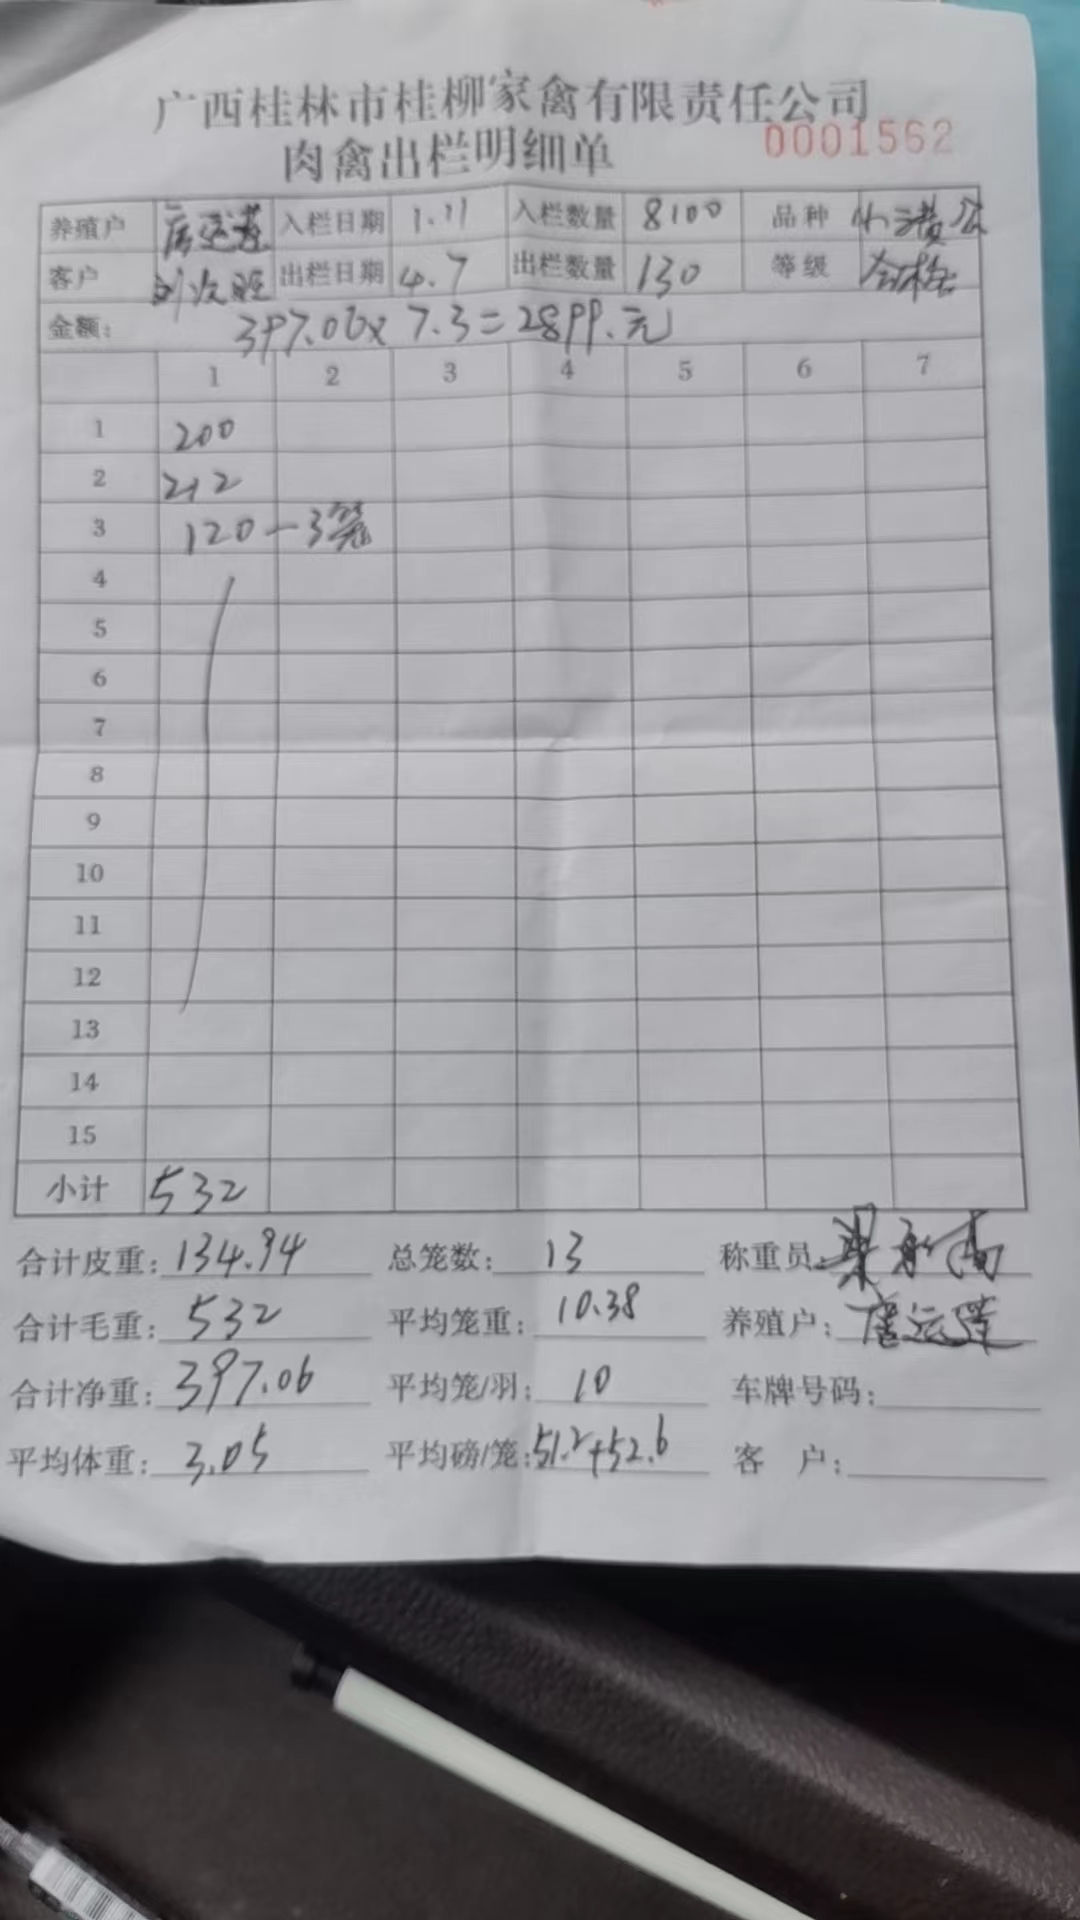 广西桂林市桂柳家禽有限责任公司
肉禽出栏明细单 0001562
养殖户 唐运莲 入栏日期 1.11 入栏数量 8100 品种
客户 出栏日期 4.7 出栏数量 130 等级 合格
金额: 397.06x7.3=2899.元
1 2 3 4 5 6 7
1 200
2 212
3 120-3笼
4
5
6
7
8
9
10
11
12
13
14
15
小计 532
合计皮重: 134.94 总笼数: 13 称重员:
合计毛重: 532 平均笼重: 10.38 养殖户: 唐运莲
合计净重: 397.06 平均笼/羽: 10 车牌号码:
平均体重: 3.05 平均磅/笼: 51.2+52.6 客 户: